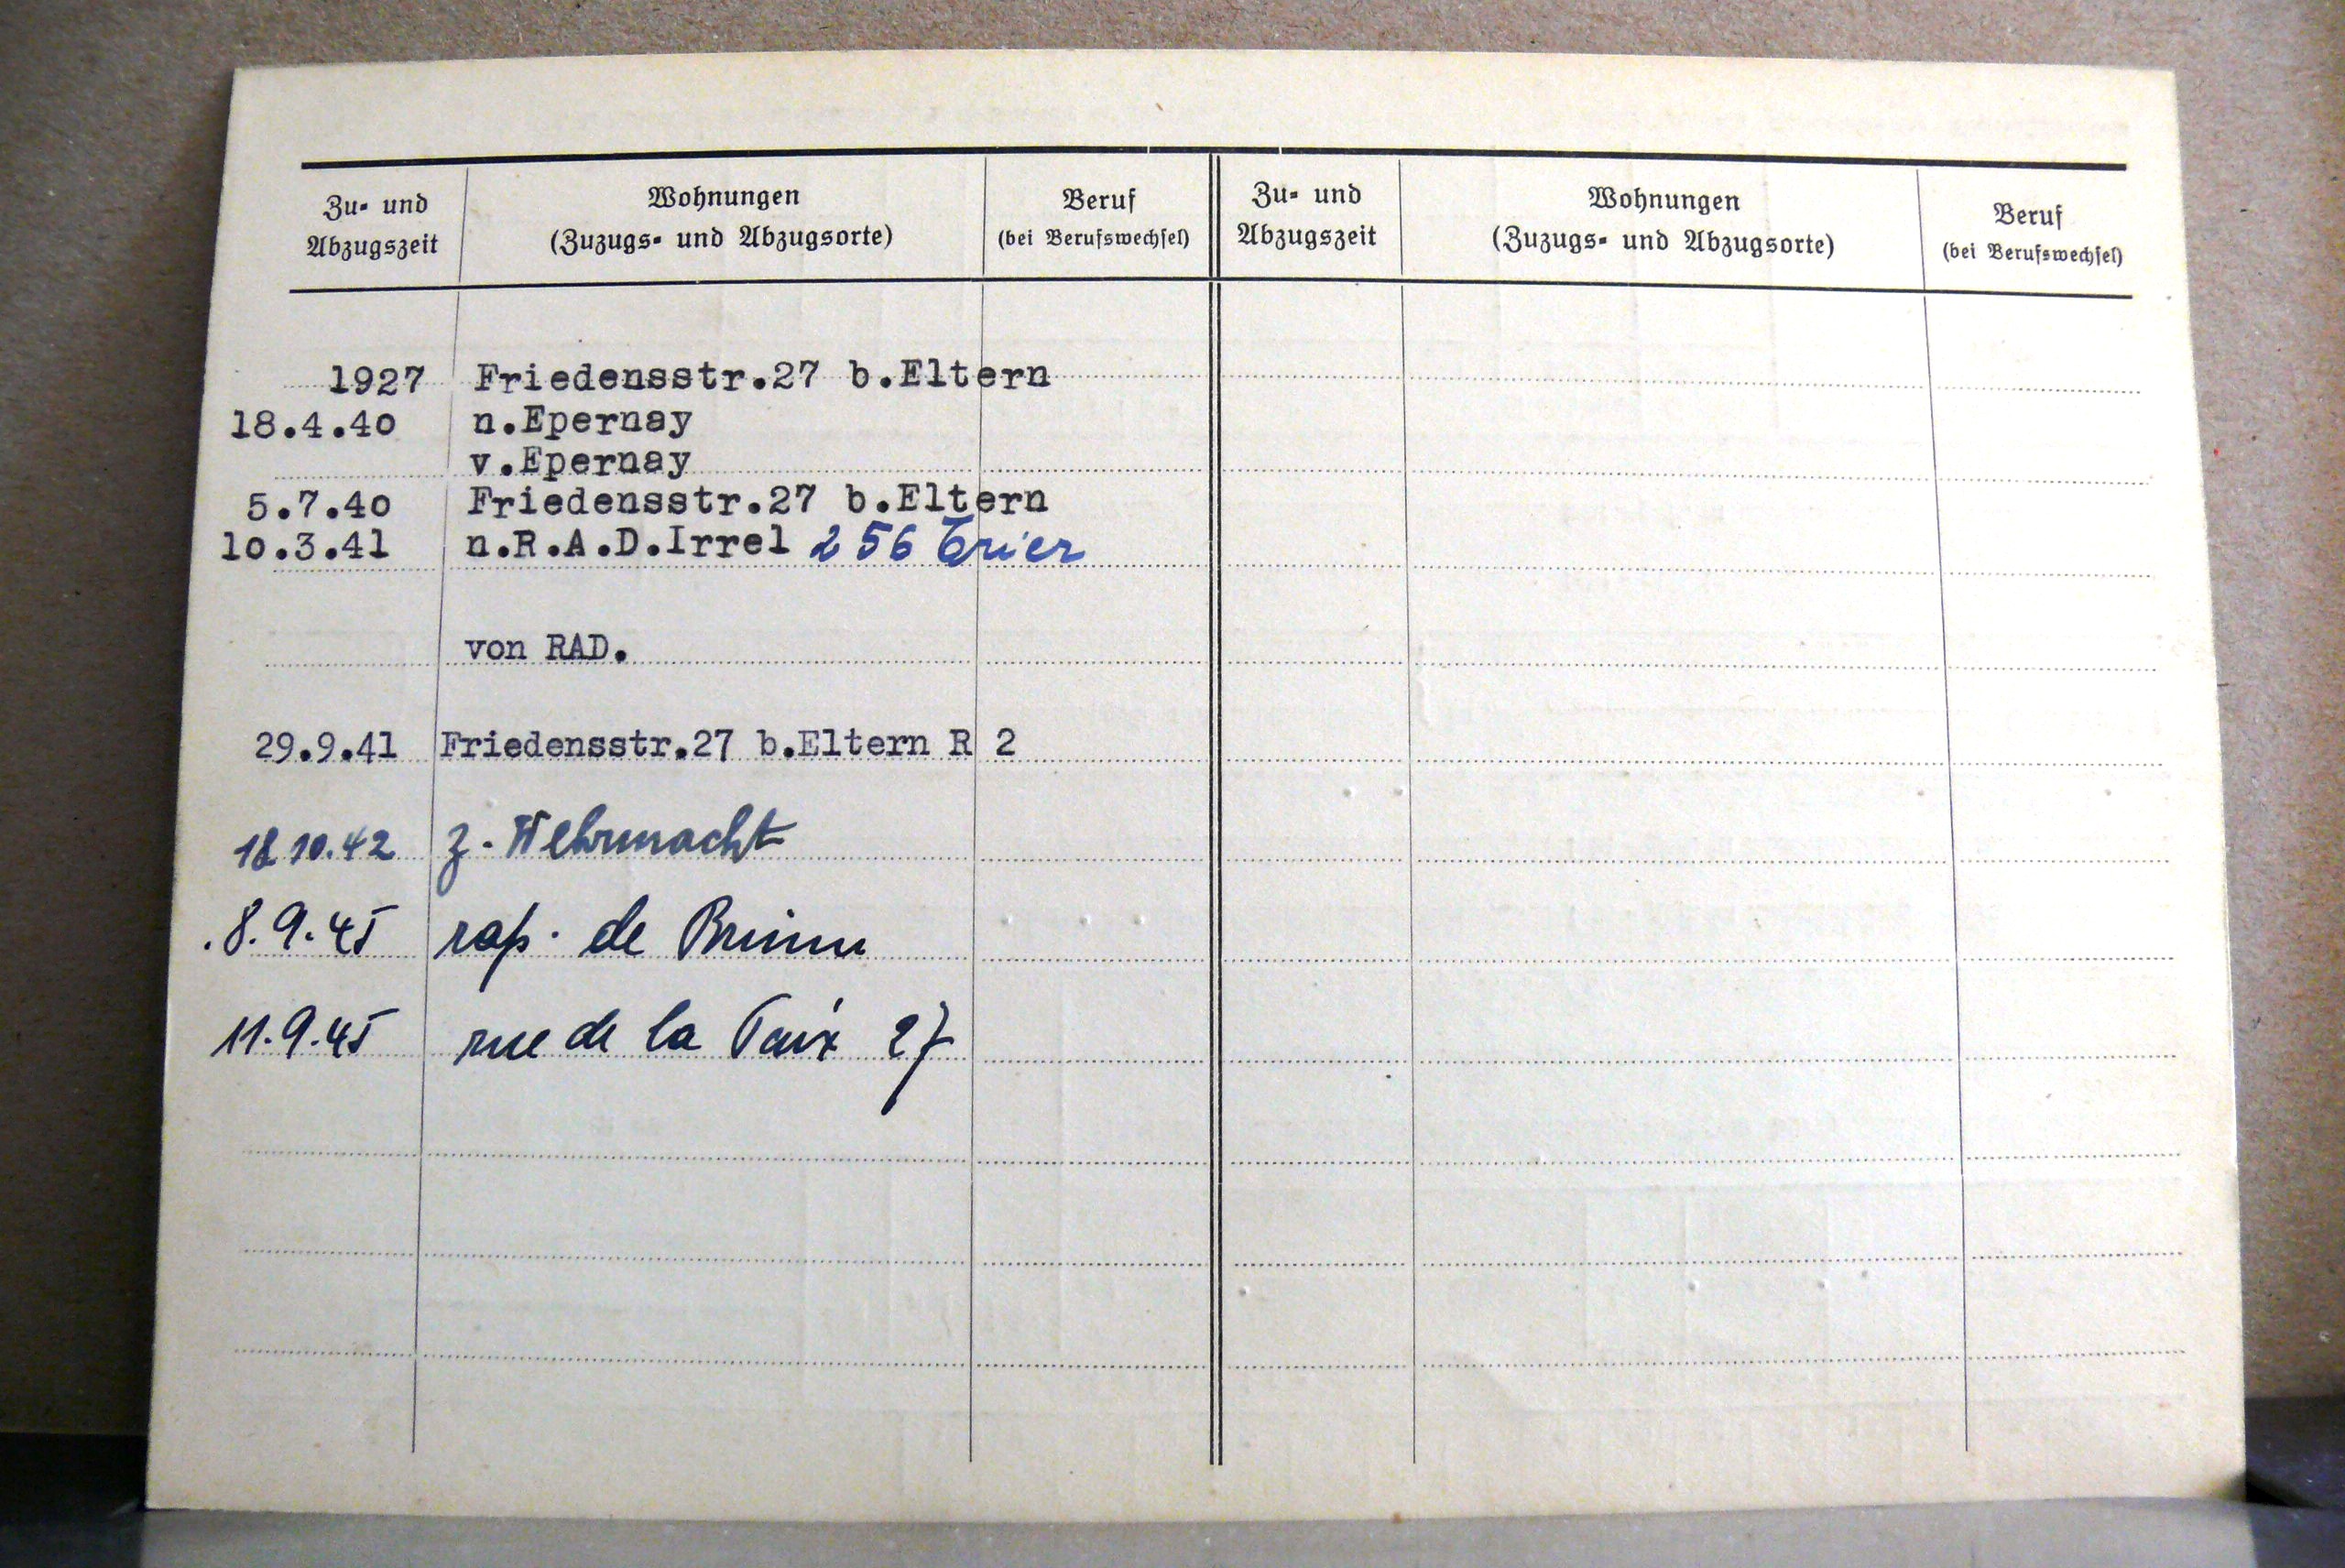 Zu- und Abzugszeit
Wohnungen (Zuzugs- und Abzugsorte)
Beruf (bei Berufswechsel)
Zu- und Abzugszeit
Wohnungen (Zuzugs- und Abzugsorte)
Beruf (bei Berufswechsel)
1927 Friedensstr.27 b.Eltern
18.4.40 n.Epernay
v.Epernay
5.7.40 Friedensstr.27 b.Eltern
10.3.41 n.R.A.D.Irrel 256 Trier
von RAD.
29.9.41 Friedensstr.27 b.Eltern R 2
10.42 z. Wehrmacht
8.9.45 rap. de
11.9.45 rue de la Paix 27